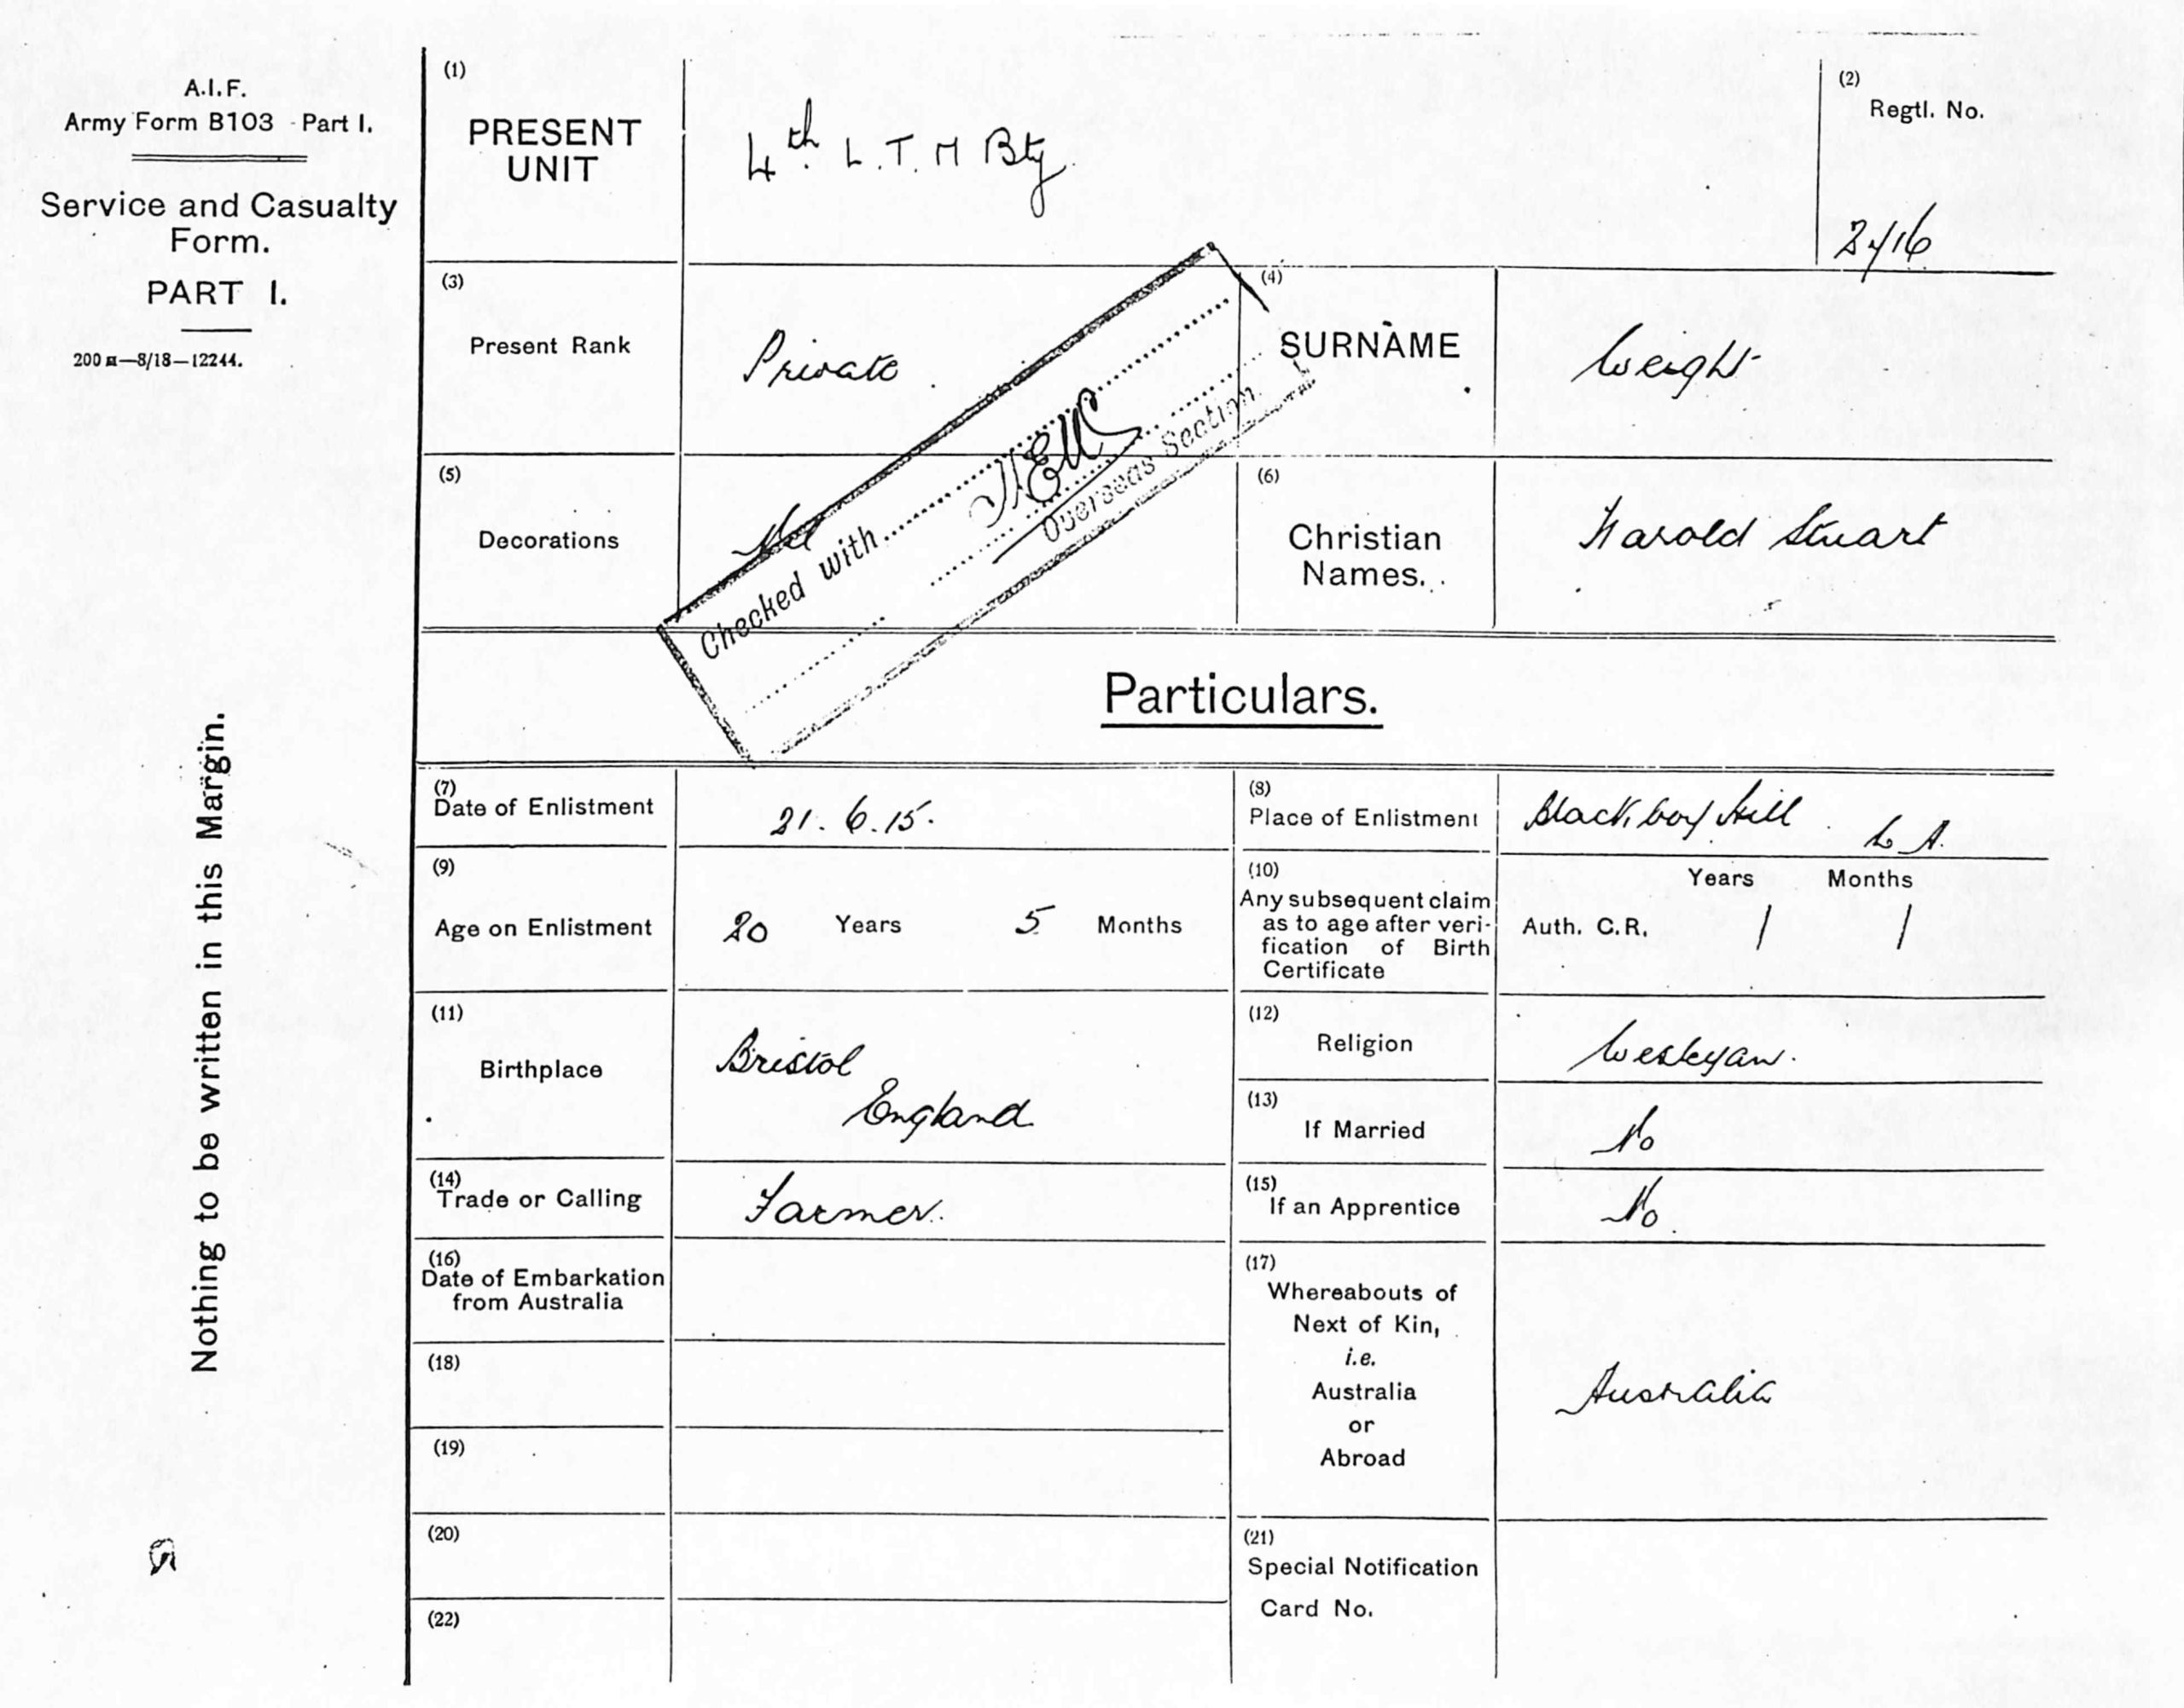 A.I.F.
Army Form B103 - Part I.
Service and Casualty
Form.
PART I.
200 M—8/18—12244.
Nothing to be written in this Margin.
(1)
PRESENT
UNIT
4th. L.T.M Bty.
(2)
Regtl. No.
(3)
Present Rank
Private
(4)
SURNAME
Weight
(5)
Decorations
Nil
(6)
Christian
Names.
Harold Stuart
Checked with
Overseas Section.
Particulars.
(7)
Date of Enlistment
21.6.15.
(8)
Place of Enlistment
Blackboy Hill. W A.
(9)
Age on Enlistment
20 Years 5 Months
(10)
Any subsequent claim
as to age after veri-
fication of Birth
Certificate
Years Months
Auth. C.R. / /
(11)
Birthplace
Bristol
England
(12)
Religion
Wesleyan.
(13)
If Married
No
(14)
Trade or Calling
Farmer.
(15)
If an Apprentice
No
(16)
Date of Embarkation
from Australia
(17)
Whereabouts of
Next of Kin,
i.e.
Australia
or
Abroad
Australia
(18)
(19)
(20)
(21)
Special Notification
Card No.
(22)